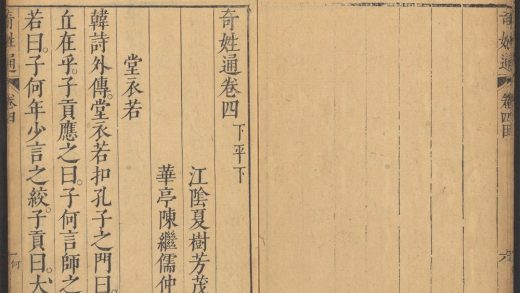 奇姓通 卷四目
奇姓通卷四 下平下
江陰夏樹芳茂
華亭陳繼儒仲
堂衣若
韓詩外傳。堂衣若扣孔子之門曰。
丘在乎。子貢應之曰。子何言師之
若曰。子何年少言之絞。子貢曰。大
奇姓通 卷四 一 何